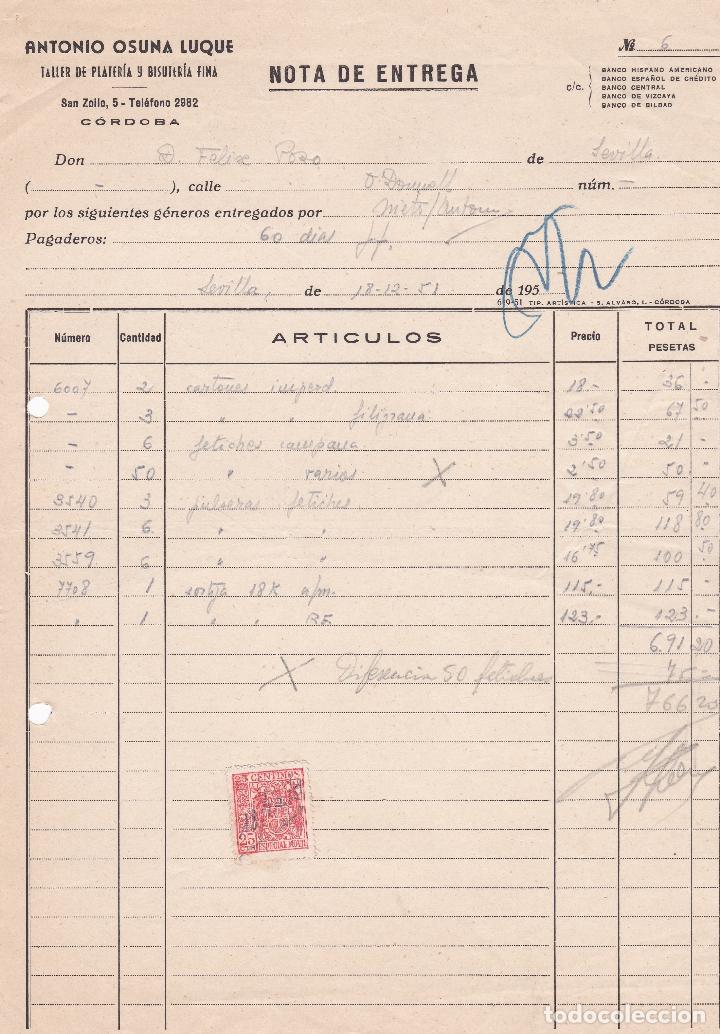 ANTONIO OSUNA LUQUE
TALLER DE PLATERÍA Y BISUTERÍA FINA
San Zoilo, 5 - Teléfono 2982
CÓRDOBA
NOTA DE ENTREGA
Nº 6
c/c.
BANCO HISPANO AMERICANO
BANCO ESPAÑOL DE CRÉDITO
BANCO CENTRAL
BANCO DE VIZCAYA
BANCO DE BILBAO
Don D. Felix Pozo de Sevilla
( - ), calle O'Donnell núm. -
por los siguientes géneros entregados por Nieto/Antonio
Pagaderos: 60 dias
Sevilla, de 18-12-51 de 195
6-9-51 TIP. ARTÍSTICA - S. ALVARO, 1.- CÓRDOBA
Número Cantidad ARTICULOS Precio TOTAL PESETAS
6007 2 cartones imperd. 18.- 36 -
- 3 " " filigrana 22'50 67 50
- 6 fetiches campana 3'50 21 -
- 50 " varios X 2'50 50 -
3540 3 pulseras fetiches 19'80 59 40
3541 6 " " 19'80 118 80
3559 6 " " 16'75 100 50
7708 1 sortija 18K a/m. 115,- 115 -
" 1 " " RF. 123,- 123 -
691 20
X Diferencia 50 fetiches 75 -
766 20
25 CENTIMOS 25
25 CTS
ESPECIAL MOVIL
todocoleccion